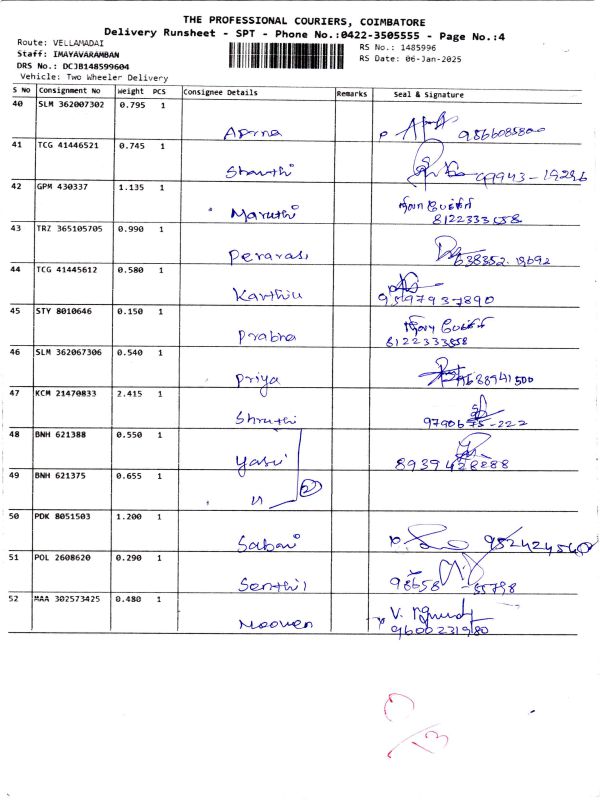 THE PROFESSIONAL COURIERS, COIMBATORE
Delivery Runsheet - SPT - Phone No.:0422-3505555 - Page No.:4
Route: VELLAMADAI
Staff: IMAYAVARAMBAN
DRS No.: DCJB148599604
Vehicle: Two Wheeler Delivery
RS No.: 1485996
RS Date: 06-Jan-2025
S No Consignment No Weight PCS Consignee Details Remarks Seal & Signature
40 SLM 362007302 0.795 1 Aparna 9566085800
41 TCG 41446521 0.745 1 Shanthi 99943-19286
42 GPM 430337 1.135 1 Maruthi
8122333558
43 TRZ 365105705 0.990 1 Perarasi 638352.18692
44 TCG 41445612 0.580 1 Karthiu
9597937890
45 STY 8010646 0.150 1 Prabha
8122333558
46 SLM 362067306 0.540 1 Priya 9688941500
47 KCM 21470833 2.415 1 Shruthi
9790675-222
48 BNH 621388 0.550 1 Yasi
8939428288
49 BNH 621375 0.655 1 11 2
50 PDK 8051503 1.200 1 Sabari 9524245640
51 POL 2608620 0.290 1 Senthil 98658 55798
52 MAA 302573425 0.480 1 Naveen
9600231980
13